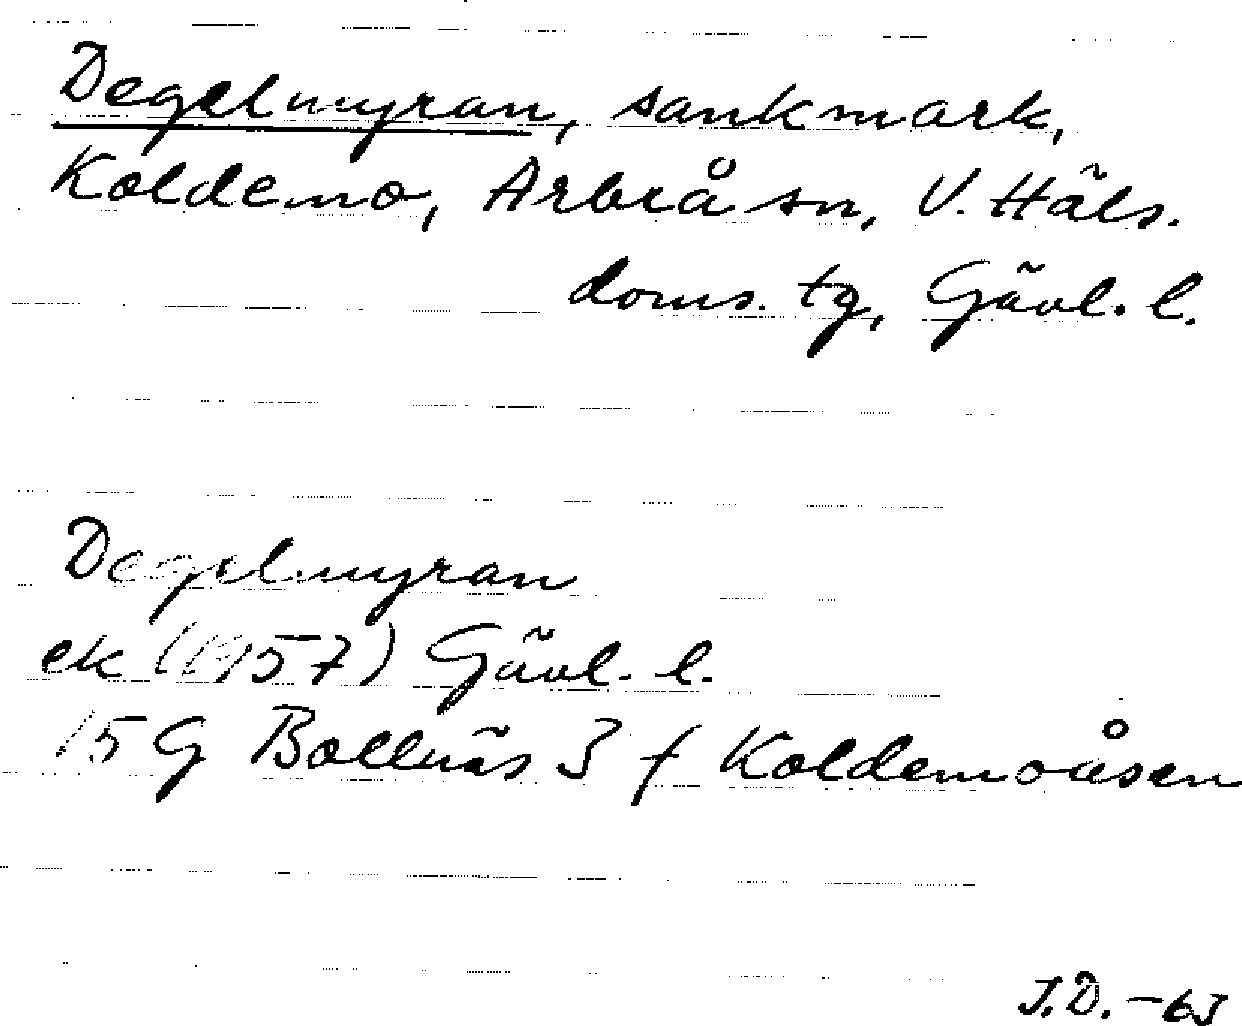 Degelmyran, sankmark,
Koldemo, Arbrå sn, V. Häls.
doms. tg, Gävl. l.
Degelmyran
ek (1957) Gävl. l.
15 G Bollnäs 3 f Koldemoåsen
J.D. -65